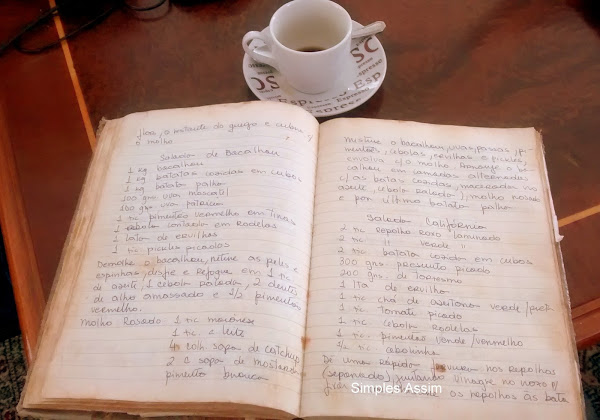 Espresso
fora, o restante do queijo e cubra c/
o molho
Salada de Bacalhau
1 kg bacalhau
1 kg batatas cozidas em cubos
1 kg batata palha
100 grs uva moscatel
100 grs uva passa
1 xic pimentão vermelho em tiras
1 cebola cortada em rodelas
1 lata de ervilhas
1 xic picles picados
Demolhe o bacalhau, retire as peles e
espinhas, desfie e refogue em 1 xic
de azeite, 1 cebola ralada, 2 dentes
de alho amassado e 1/2 pimentão
vermelho.
Molho Rosado 1 xic maionese
1 xic. c leite
4 colh. sopa de catchup
2 c sopa de mostarda
pimenta branca
Misture o bacalhau, uvas, passas, pi-
mentões, cebolas, ervilhas e picles,
envolva c/ o molho. Arrume o ba-
calhau em camadas alternadas
c/ as batatas cozidas, maceradas no
azeite, cebola ralada), molho rosado
e por último batata palha
Salada Califórnia
2 xic repolho roxo laminado
2 xic " verde "
2 xic batata cozida em cubos
300 grs. presunto picado
200 grs. de
1 lta de ervilha
1 xic chá de azeitona verde/pret
1 xic tomate picado
1 xic cebola rodelas
1 xic pimentão verde/vermelho
1/2 xic cebolinha
Dê uma rápida nos repolhos
(separados) juntando vinagre no roxo p/
ficar os repolhos às bata
Simples Assim